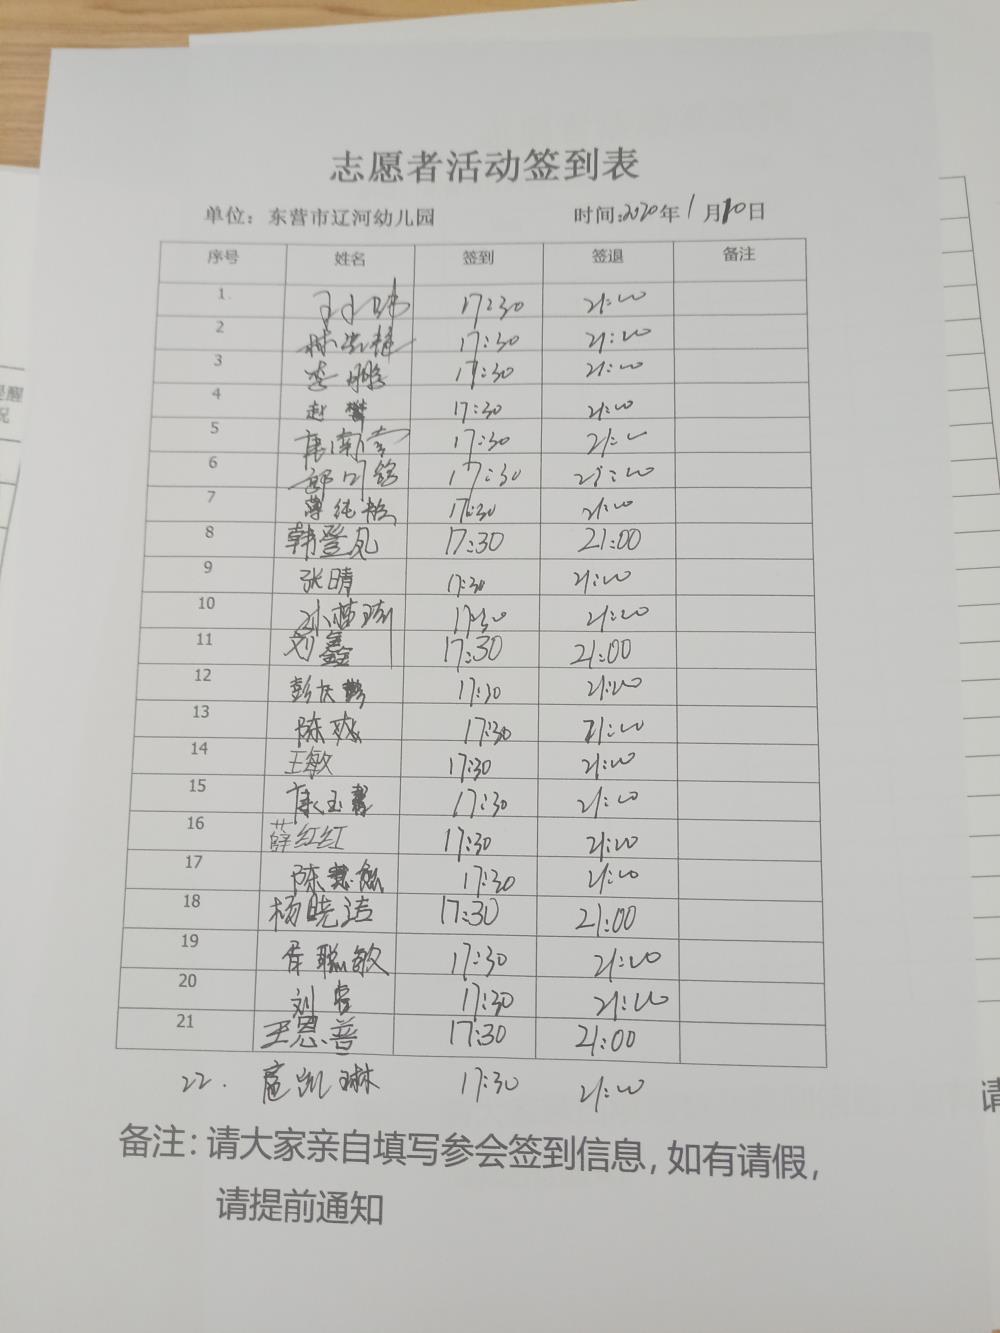 志愿者活动签到表
单位：东营市辽河幼儿园 时间:2020年1月10日
序号 姓名 签到 签退 备注
1 17:30 21:00
2 17:30 21:00
3 李鹏 17:30 21:00
4 赵 17:30 21:00
5 唐 17:30 21:00
6 17:30 21:00
7 薄纯 17:30 21:00
8 韩登凡 17:30 21:00
9 张晴 17:30 21:00
10 孙梦 17:30 21:00
11 刘鑫 17:30 21:00
12 彭庆 17:30 21:00
13 陈爽 17:30 21:00
14 王敏 17:30 21:00
15 康玉 17:30 21:00
16 薛红红 17:30 21:00
17 陈 17:30 21:00
18 杨晓洁 17:30 21:00
19 聪敏 17:30 21:00
20 刘 17:30 21:00
21 王恩普 17:30 21:00
22. 扈凯琳 17:30 21:00
备注：请大家亲自填写参会签到信息，如有请假，
请提前通知